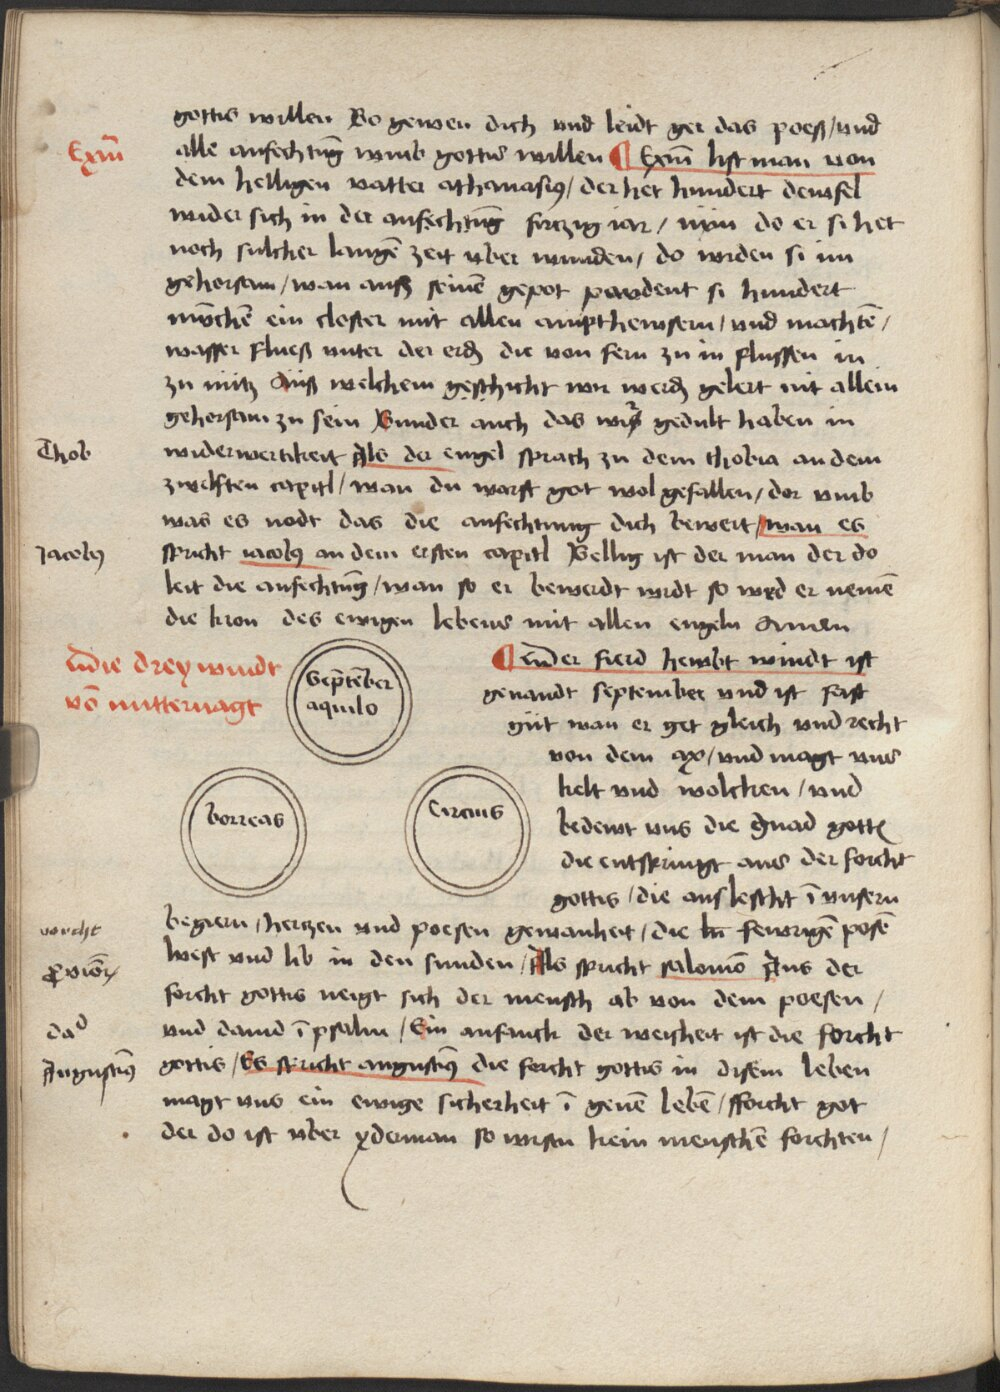 gottis willen So gewen dich vnd leidt ger das poeß / vnd
Exm̄
alle anfechtūg vmb gottis willen ¶ Exm̄ list man von
dem heiligen vatter athanasiꝰ / der het hundert dewfel
wider sich in der anfechtūg firczig iar / nūn do er si het
noch sulcher langē zeit vber wunden / do wrden si im
gehorsam / wan auß seinē gepot pawdent si hundert
mvchē ein closter mit allen ampthewsern / vnd machtē /
wasser flueß vnter der erd die von fern zu in flussen in
zu nutz Auß welchem geschicht wir werd gelert nit allein
gehorsam zu sein Sunder auch das wir gedult haben in
Thob
widerwertikeit Als der engel sprach zu dem thobia an dem
zwelften capitl / wan du warst got wol gefallen / dor vmb
was es nodt das die anfechtung dich bewert / wan es
Jacobꝰ
spricht iacobꝰ an dem ersten capitl Sellig ist der man der do
leit die anfechtūg / wan so er bewerdt wirdt so wrd er nemē
die kron des ewigen lebens mit allen engeln Amen
die drey windt
vō mitternagt
Septēber
aquilo
borreas
Circius
¶ der fierd hewbt windt ist
genandt september vnd ist fast
güt wan er get gleich vnd recht
von dem ax / vnd magt vns
kelt vnd wolcken / vnd
bedewt vns die gnad gottꝭ
die entspringt aus der forcht
gottis / die auslescht ī vnsern
vorcht
begirn / hertzen vnd poesen gewanheit / die fewrigē posē
west vnd lib in den sunden / Als spricht salomō Aus der
forcht gottis neigt sich der mensch ab von dem poesen /
dad
vnd dauid ī psalm / Ein anfanck der weisheit ist die forcht
Augustiꝰ
gottis / Es spricht augustiꝰ die forcht gottis in disem leben
magt vns ein ewige sicherheit ī genē lebē / fforcht got
der do ist vber yderman so wirstu kein menschē forchten /